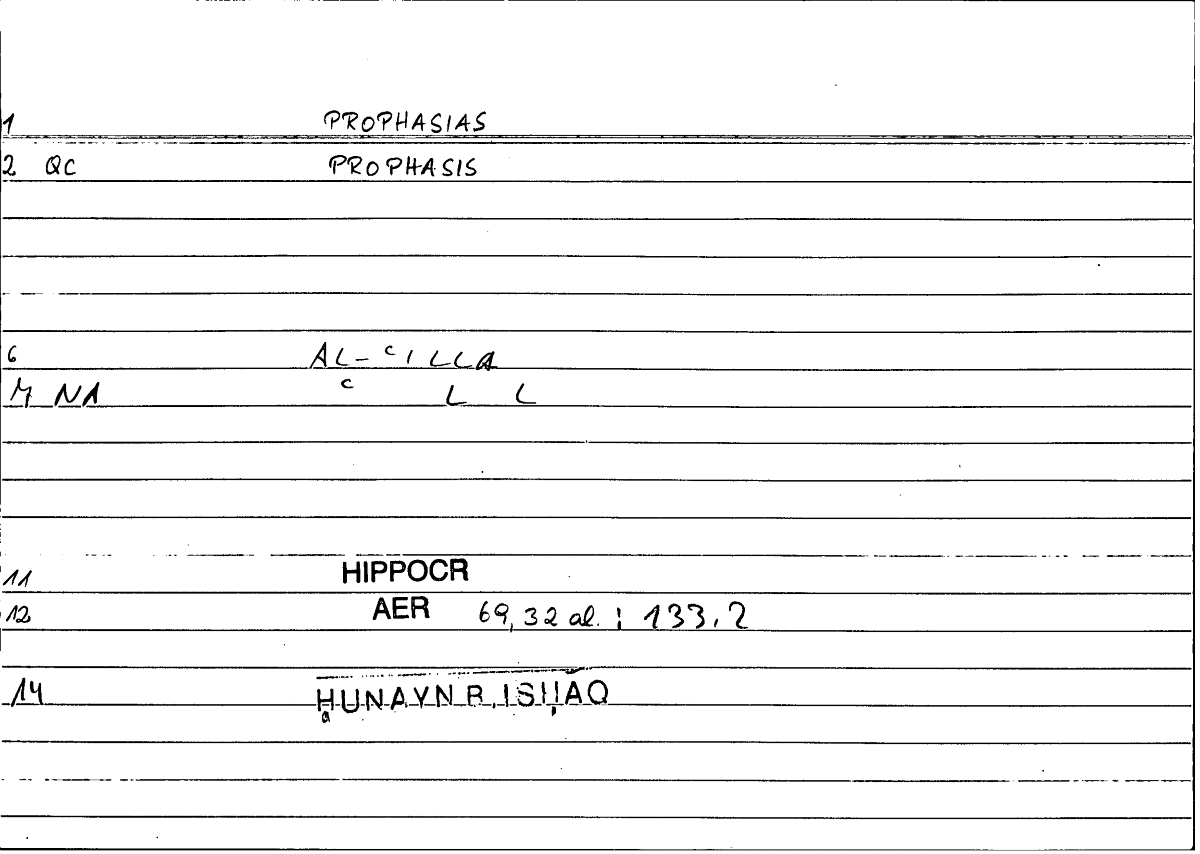 1 PROPHASIAS
2 QC PROPHASIS
6 AL-ʿILLA
M NA ʿ L L
11 HIPPOCR
12 AER 69,32 al. ; 133,2
14 ḤUNAYN B. ISḤĀQ